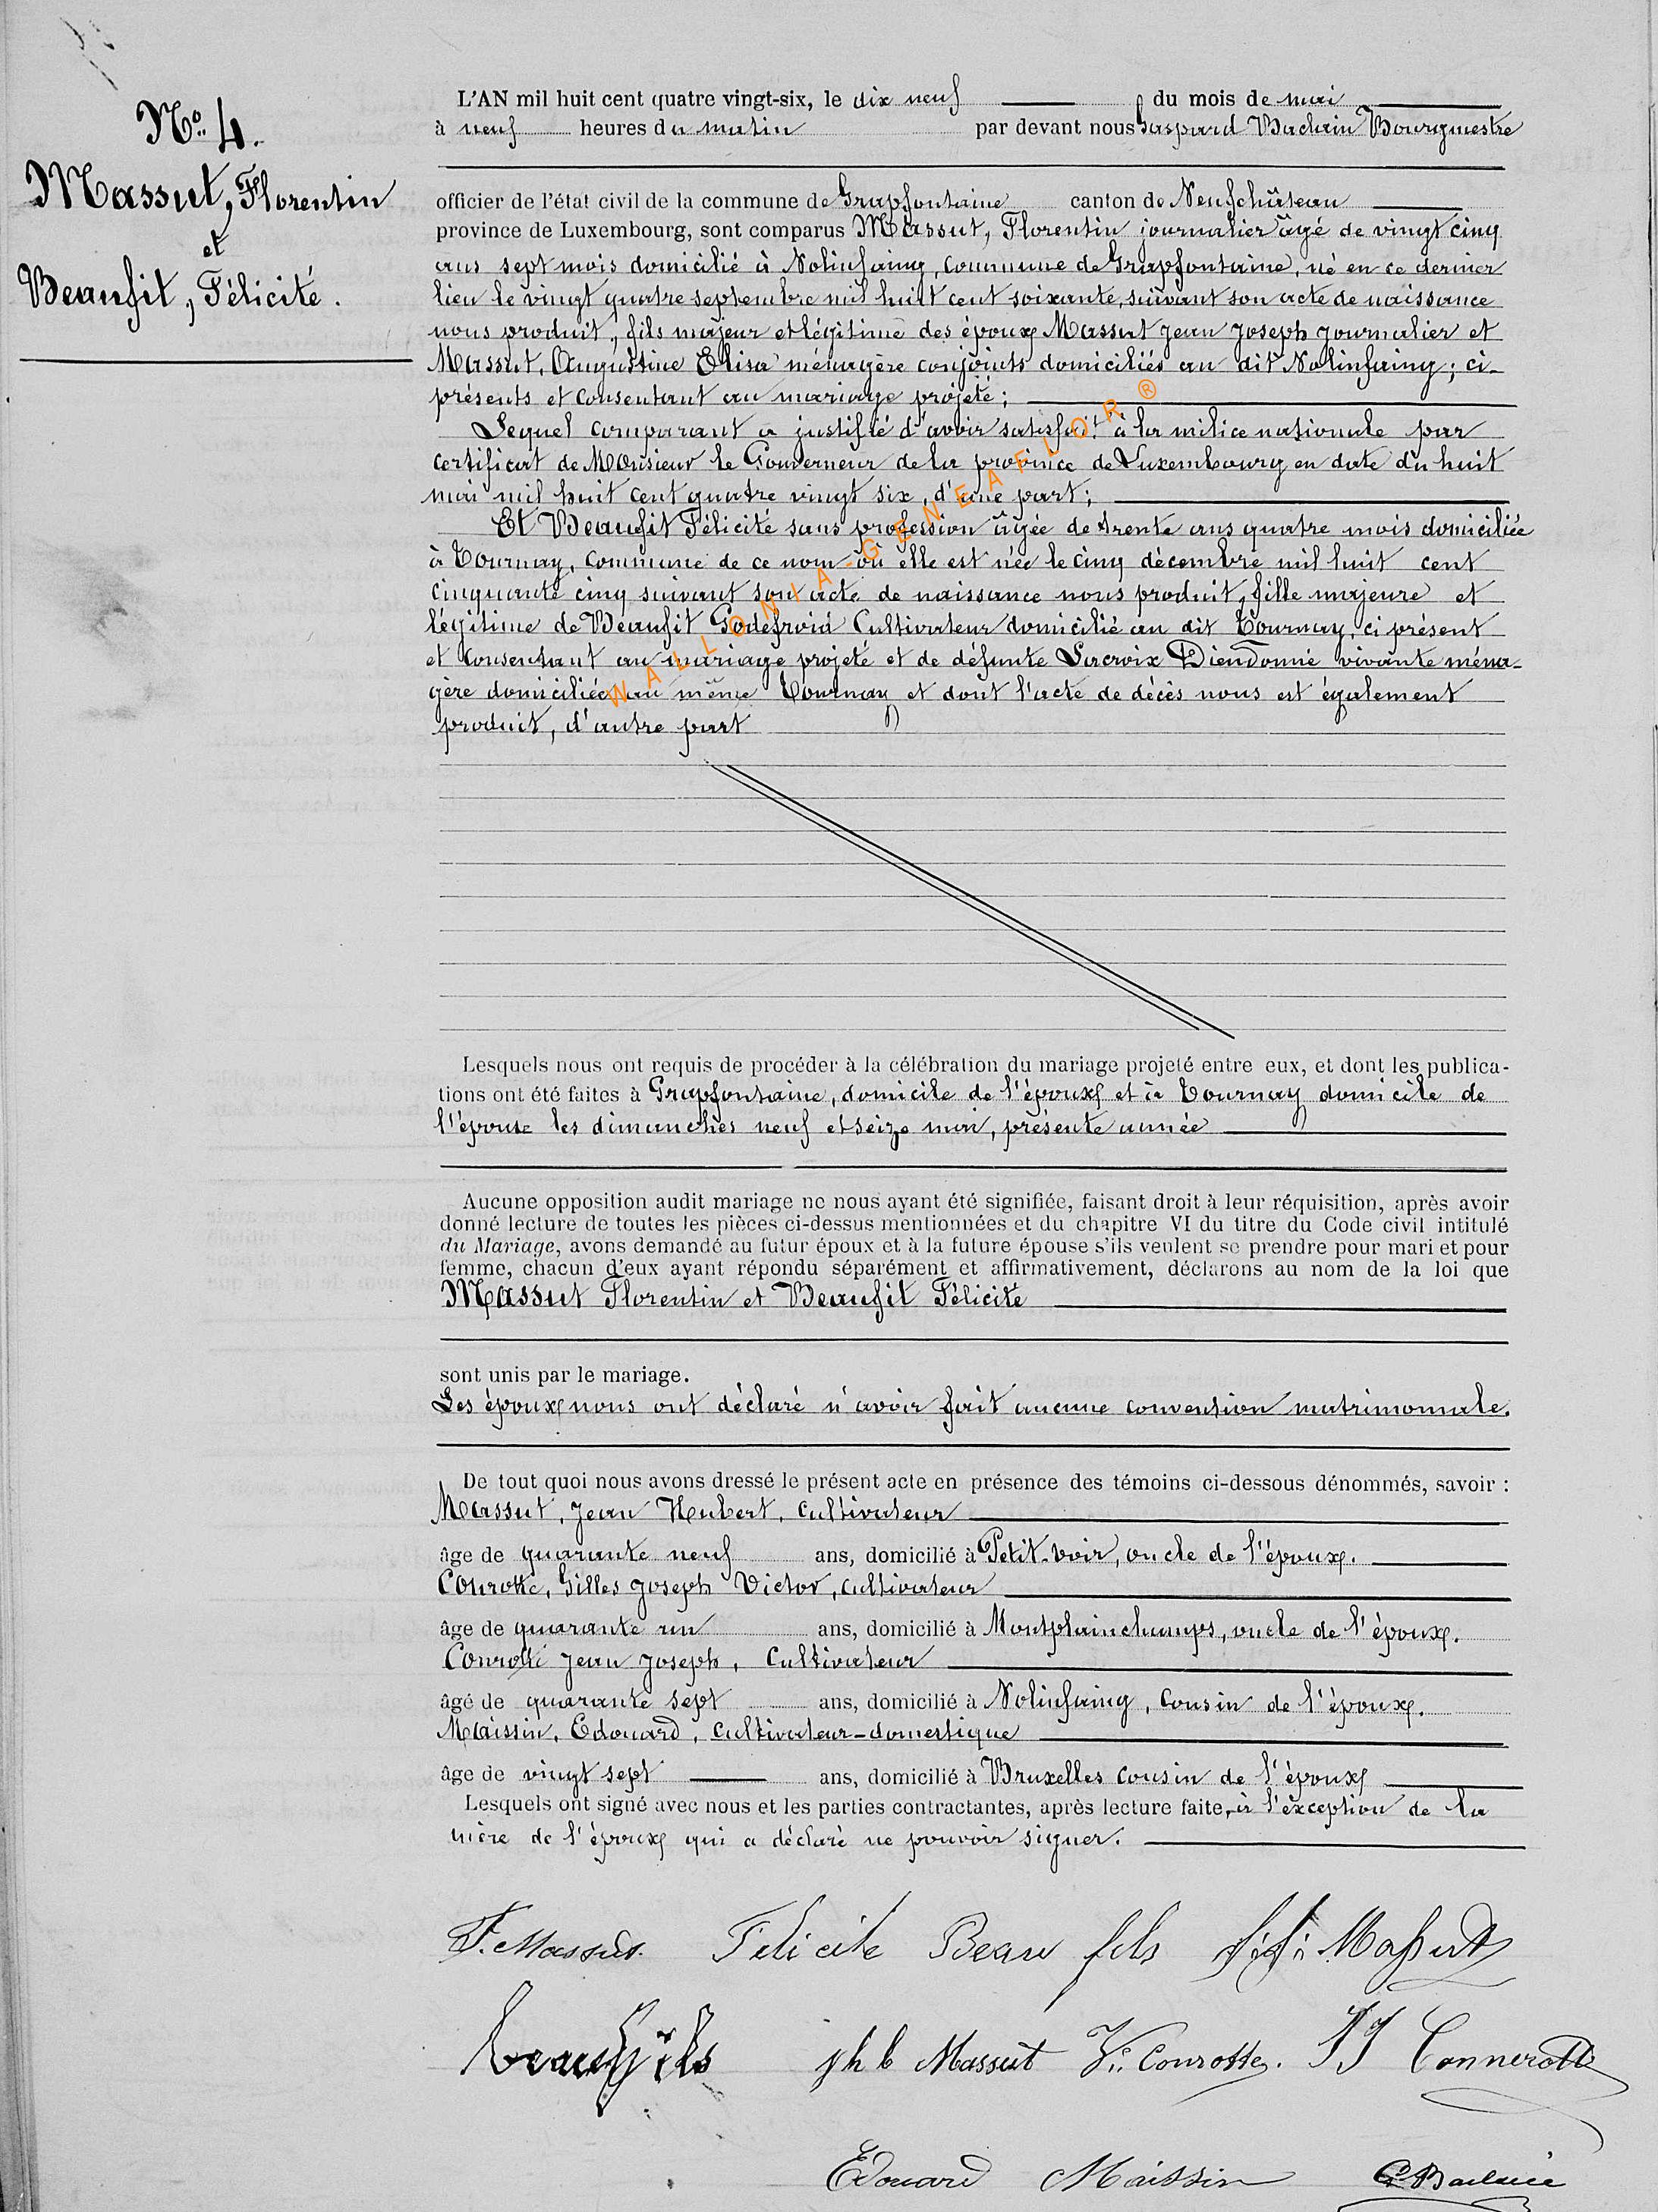 No. 4.
Massut, Florentin
et
Beaufit, Félicité.
L'AN mil huit cent quatre vingt-six, le dix neuf du mois de mai
à neuf heures du matin par devant nous Gaspard Baclain Bourgmestre
officier de l'état civil de la commune de Grapfontaine canton de Neufchâteau
province de Luxembourg, sont comparus Massut, Florentin journalier âgé de vingt cinq
ans sept mois domicilié à Nolinfaing, commune de Grapfontaine, né en ce dernier
lieu le vingt quatre septembre mil huit cent soixante, suivant son acte de naissance
nous produit, fils majeur et légitime des époux Massut Jean Joseph journalier et
Massut, Augustine Elisa ménagère conjoints domiciliés au dit Nolinfaing; ci-
présents et consentant au mariage projeté;
Lequel comparant a justifié d'avoir satisfait à la milice nationale par
certificat de Monsieur le Gouverneur de la province de Luxembourg en date du huit
mai mil huit cent quatre vingt six, d'une part;
Et Beaufit Félicité sans profession âgée de trente ans quatre mois domiciliée
à Tournay, commune de ce nom où elle est née le cinq décembre mil huit cent
cinquante cinq suivant son acte de naissance nous produit, fille majeure et
légitime de Beaufit Godefroid Cultivateur domicilié au dit Tournay, ci présent
et consentant au mariage projeté et de défunte Lacroix Diendonnée vivante ména-
gère domiciliée au même Tournay et dont l'acte de décès nous est également
produit, d'autre part
WALLONIA-GENEAFLOR ®
Lesquels nous ont requis de procéder à la célébration du mariage projeté entre eux, et dont les publica-
tions ont été faites à Grapfontaine, domicile de l'époux et à Tournay domicile de
l'épouse les dimanches neuf et seize mai, présente année
Aucune opposition audit mariage ne nous ayant été signifiée, faisant droit à leur réquisition, après avoir
donné lecture de toutes les pièces ci-dessus mentionnées et du chapitre VI du titre du Code civil intitulé
du Mariage, avons demandé au futur époux et à la future épouse s'ils veulent se prendre pour mari et pour
femme, chacun d'eux ayant répondu séparément et affirmativement, déclarons au nom de la loi que
Massut Florentin et Beaufit Félicité
sont unis par le mariage.
Les époux nous ont déclaré n'avoir fait aucune convention matrimoniale.
De tout quoi nous avons dressé le présent acte en présence des témoins ci-dessous dénommés, savoir :
Massut, Jean Hubert, cultivateur
âge de quarante neuf ans, domicilié à Petit-Voir, oncle de l'époux.
Conrotte, Gilles Joseph Victor, cultivateur
âge de quarante un ans, domicilié à Montplainchamps, oncle de l'époux.
Conrotte Jean Joseph, Cultivateur
âgé de quarante sept ans, domicilié à Nolinfaing, Cousin de l'époux.
Maissin, Edouard, cultivateur-domestique
âge de vingt sept ans, domicilié à Bruxelles cousin de l'époux
Lesquels ont signé avec nous et les parties contractantes, après lecture faite, à l'exception de la
mère de l'époux qui a déclaré ne pouvoir signer.
F. Massut Félicité Beau fils J. J. Massut
beaufils jh b Massut V. Conrotte. JJ Connerotte
Edouard Maissin G Baclain